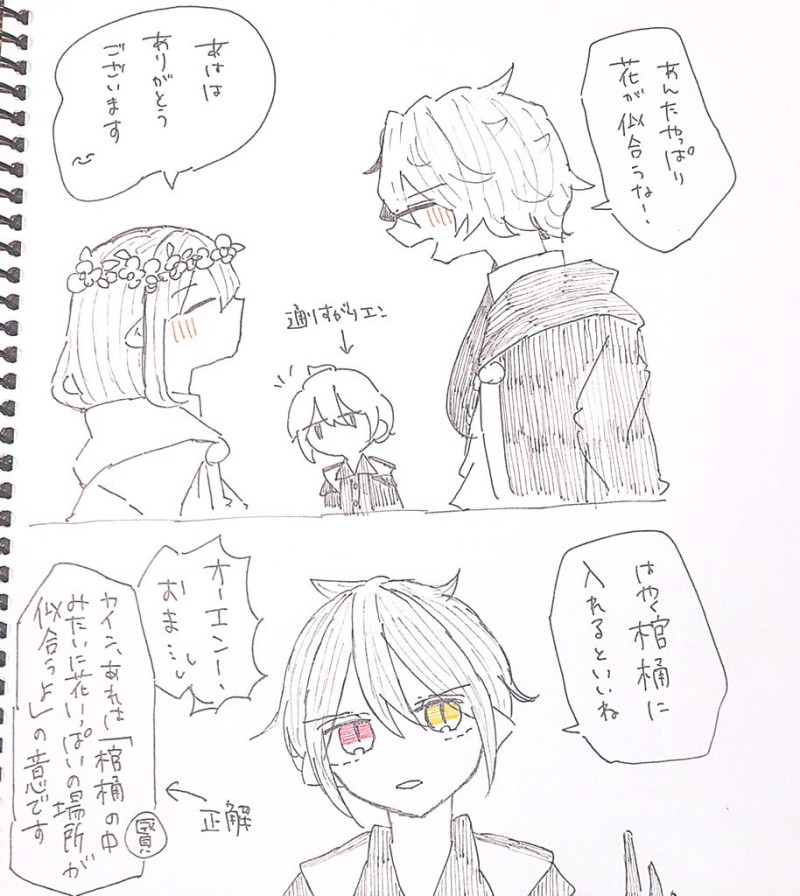 あんたやっぱり
花が似合うな!
あはは
ありがとう
ございます
通りすがりエン
はやく棺桶に
入れるといいね
オーエン!
おま…
カイン、あれは「棺桶の中
みたいに花いっぱいの場所が
似合うよ」の意です
賢
正解